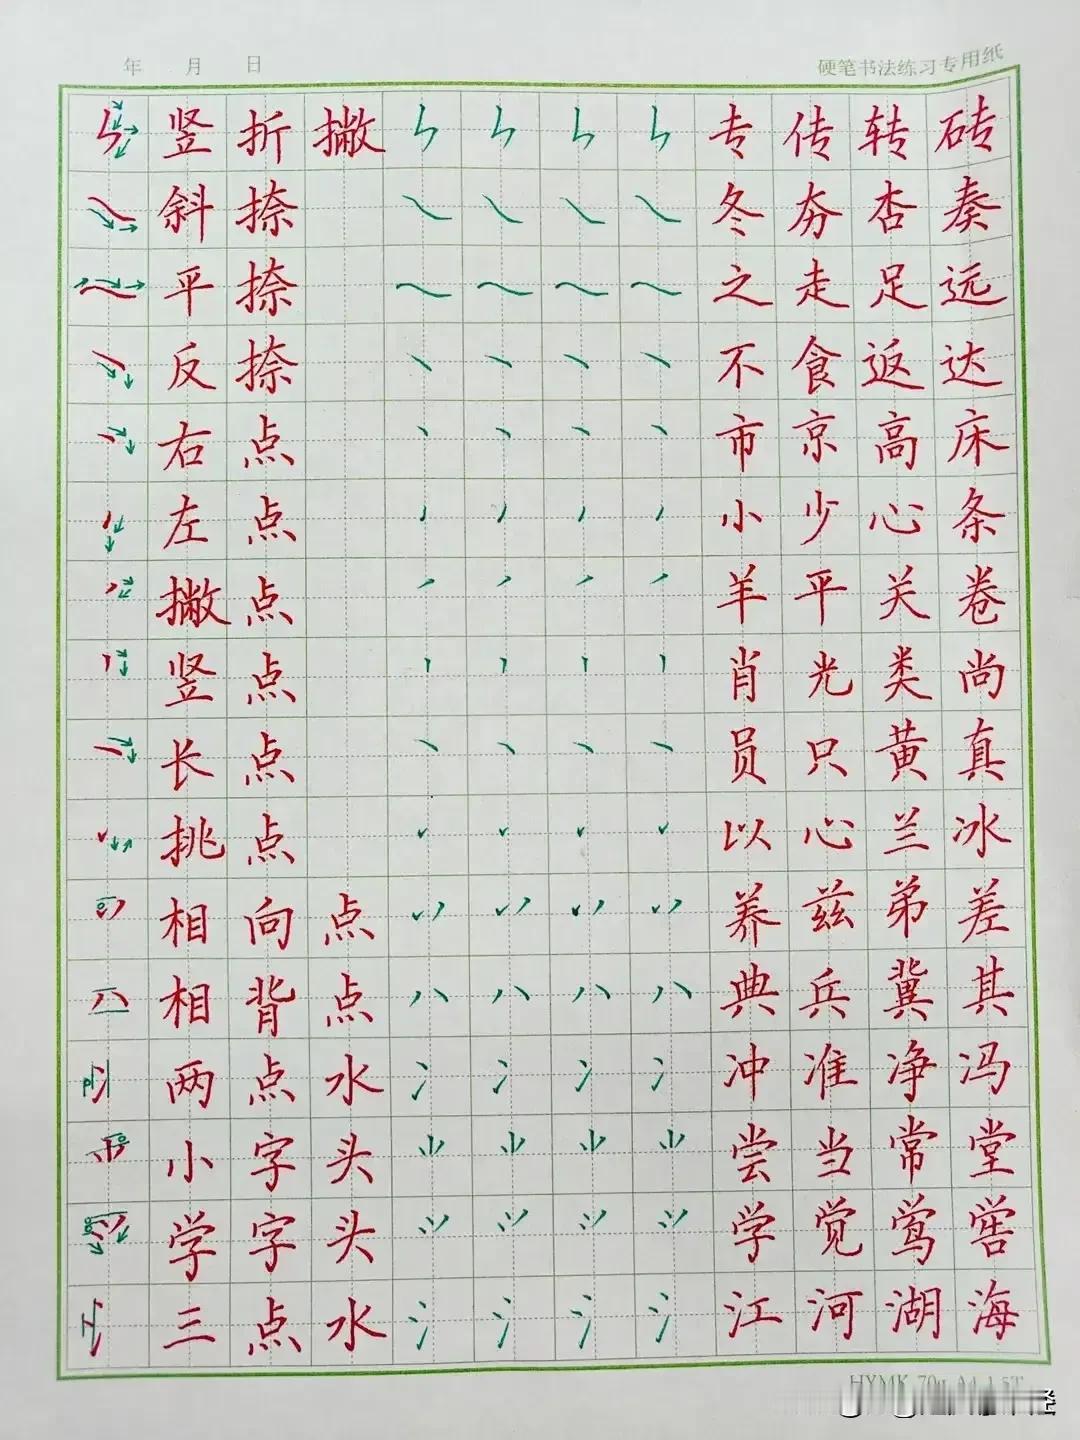 年 月 日 硬笔书法练习专用纸
竖折撇 专传转砖
斜捺 冬夯杏奏
平捺 之走足远
反捺 不食返达
右点 市京高床
左点 小少心条
撇点 羊平关卷
竖点 肖光类尚
长点 员只黄真
挑点 以心兰冰
相向点 养兹弟差
相背点 典兵冀其
两点水 冫 冫 冫 冫 冲准净冯
小字头 尝当常堂
学字头 学觉莺喾
三点水 氵 氵 氵 氵 江河湖海
HYMK 70g A4 1.5T